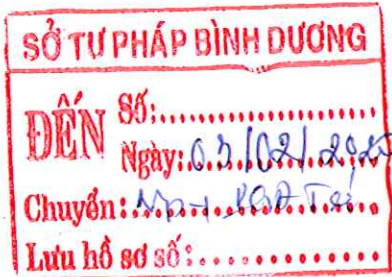 SỞ TƯ PHÁP BÌNH DƯƠNG
ĐẾN
Số:....................
Ngày: 03/02/
Chuyển:
Lưu hồ sơ số:............